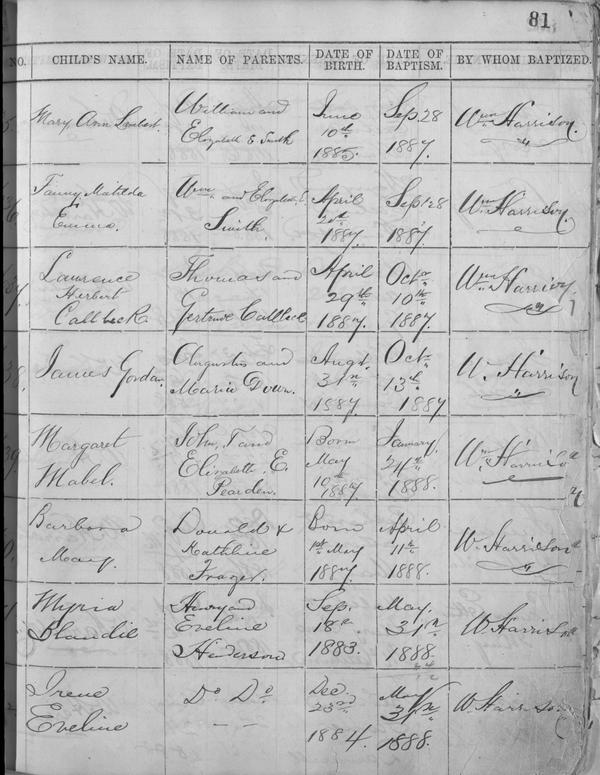 81
NO. CHILD'S NAME. NAME OF PARENTS. DATE OF BIRTH. DATE OF BAPTISM. BY WHOM BAPTIZED.
Mary Ann
William and Elizabeth E Smith
June 10th
Sep. 28 1887.
Wm Harrison.
Fanny Matilda Emma.
Wm and Elizabeth E. Smith
April 1887.
Sep 28 1887.
Wm Harrison.
Lawrence Herbert Callbeck
Thomas and Gertrude Callbeck
April 29th 1887.
Octr 10th 1887.
Wm Harrison
38.
James Gordan.
Augustus and Maria Down.
Augt. 31st 1887.
Oct. 13th 1887
W. Harrison
39
Margaret Mabel.
John T and Elizabeth E. Pearden.
Born May 10th 1887
January 24th 1888.
Wm Harrison
Barbara May.
Donald & Kathline Frager.
Born 1st May 1887.
April 11th 1888.
W. Harrison
Myria Blandie
Henry and Eveline Henderson
Sep. 18th 1883.
May. 31st 1888.
W. Harrison
Irene Eveline
Do Do
Dec. 23rd 1884.
May 31st 1888.
W. Harrison